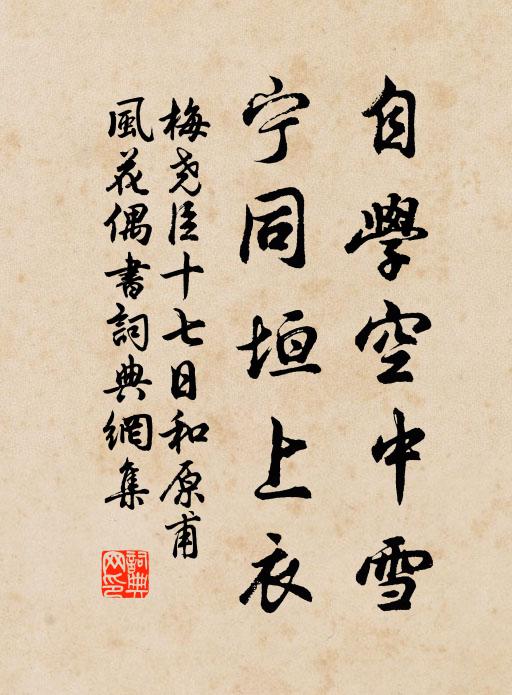 自學空中雪
宁同垣上衣
梅尧臣十七日和原甫
風花偶書詞典網集
詞典
网印